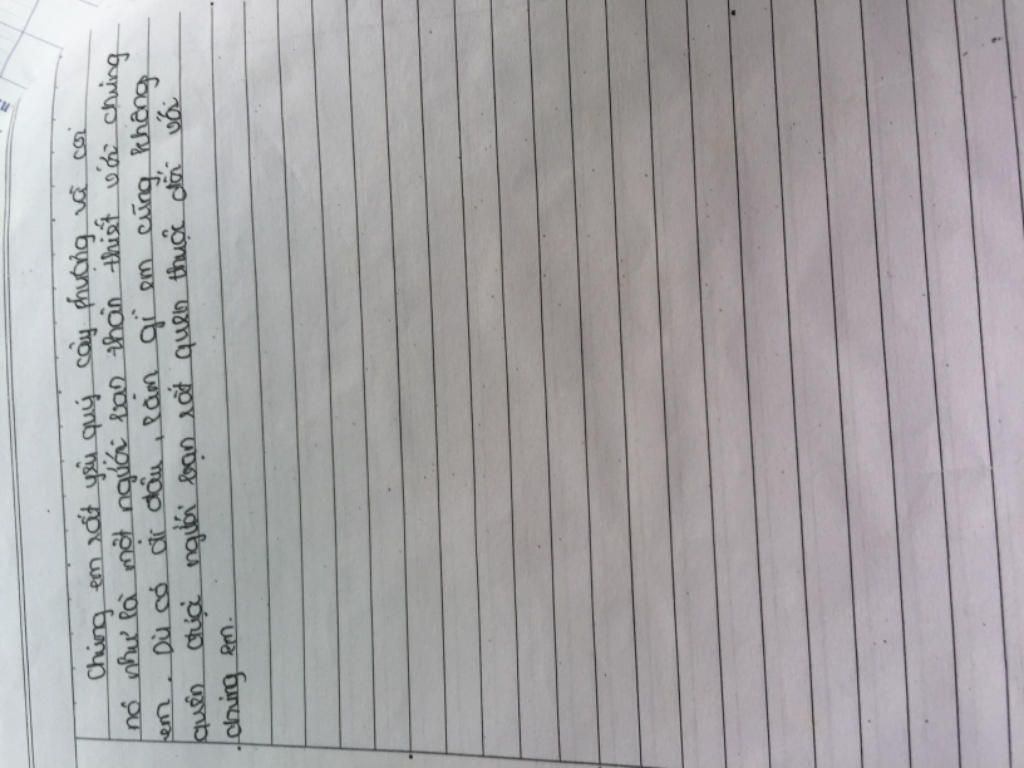 Chúng em rất yêu quý cây phượng và coi
nó như là một người bạn thân thiết với chúng
em. Dù có đi đâu, làm gì em cũng không
quên được người bạn rất quen thuộc đối với
chúng em.